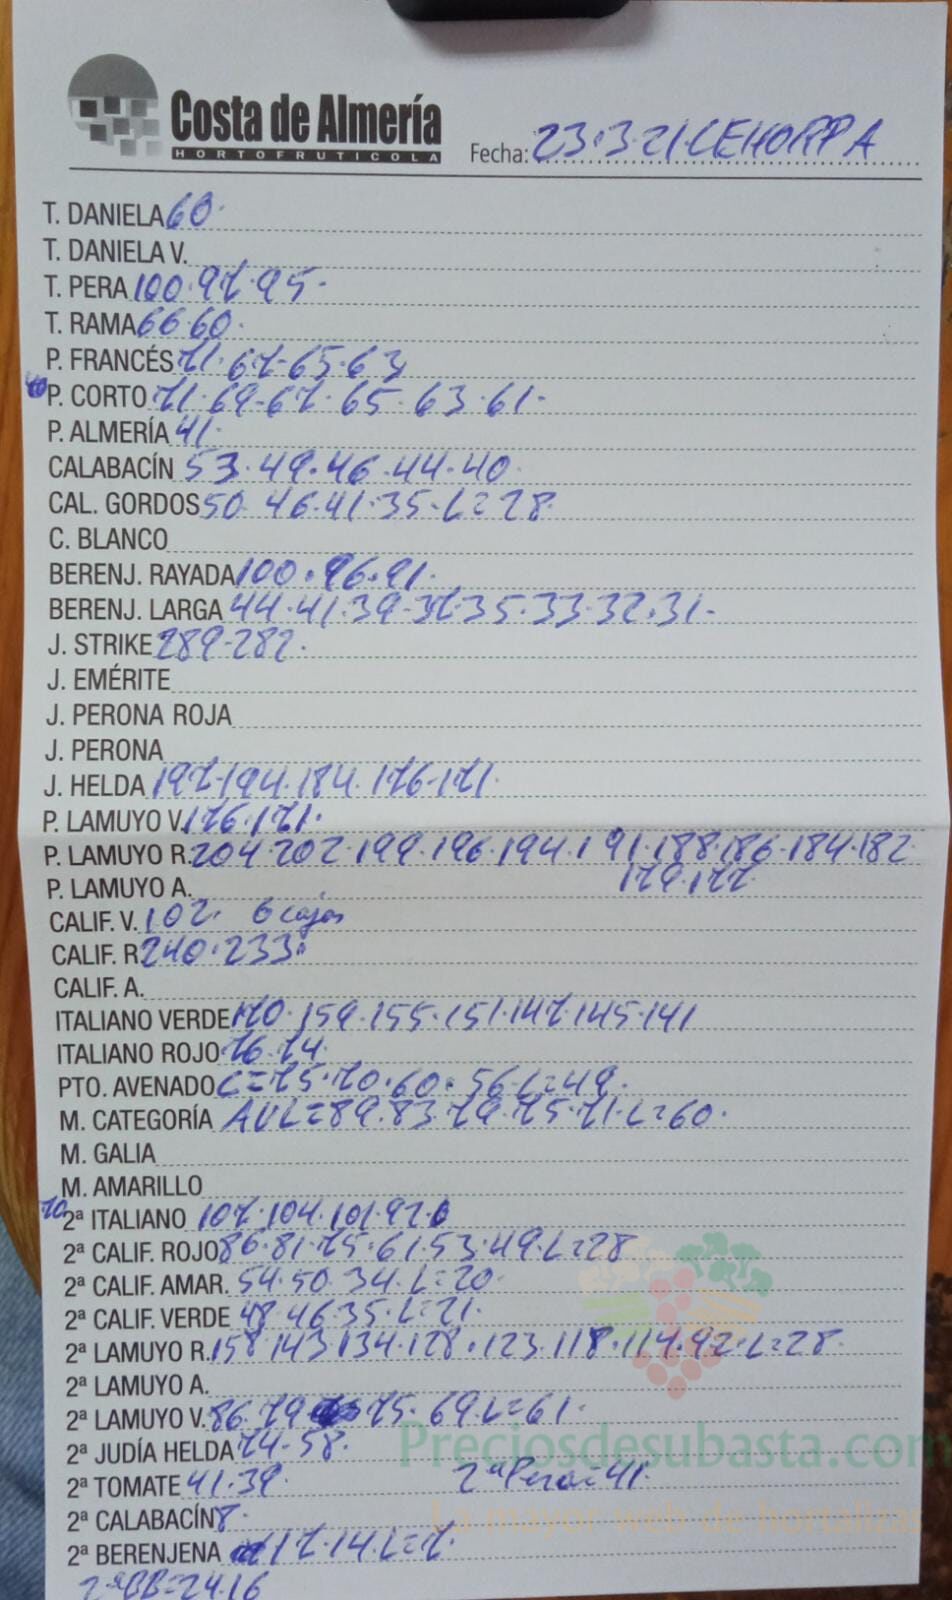 Costa de Almería
HORTOFRUTICOLA
Fecha: 23.3.21.CEHORPA
T. DANIELA 60.
T. DANIELA V.
T. PERA 100.97.95.
T. RAMA 66.60.
P. FRANCÉS 71.67-65.63
P. CORTO 71.69-67.65.63.61.
P. ALMERÍA 41.
CALABACÍN 53.49.46.44.40.
CAL. GORDOS 50.46.41.35.L=28.
C. BLANCO
BERENJ. RAYADA 100.96.91.
BERENJ. LARGA 44.41.39.37.35.33.32.31.
J. STRIKE 289-282.
J. EMÉRITE
J. PERONA ROJA
J. PERONA
J. HELDA 197-194.184.176-171.
P. LAMUYO V. 176.171.
P. LAMUYO R. 204.202.199.196.194.191.188.186.184.182
P. LAMUYO A. 179.177.
CALIF. V. 102. 6 cajas
CALIF. R 240.233.
CALIF. A.
ITALIANO VERDE 170.159.155.151.147.145.141
ITALIANO ROJO 76.74.
PTO. AVENADO L=75.70.60.56-L=49.
M. CATEGORÍA AVL=89.83.79.75.71.L=60.
M. GALIA
M. AMARILLO
70 2ª ITALIANO 107.104.101.92.
2ª CALIF. ROJO 86.81.75.61.53.49.L=28
2ª CALIF. AMAR. 54.50.34.L=20.
2ª CALIF. VERDE 48.46.35.L=21.
2ª LAMUYO R. 158.143.134.128.123.118.114.92.L=28.
2ª LAMUYO A.
2ª LAMUYO V. 86.79 75.69.L=61.
Preciosdesubasta.com
2ª JUDÍA HELDA 74-58.
2ª TOMATE 41.39. 2ª Pera=41.
2ª CALABACÍN 8.
La mayor web de hortalizas
2ª BERENJENA 17.14.L=7.
2ªBB=24.16